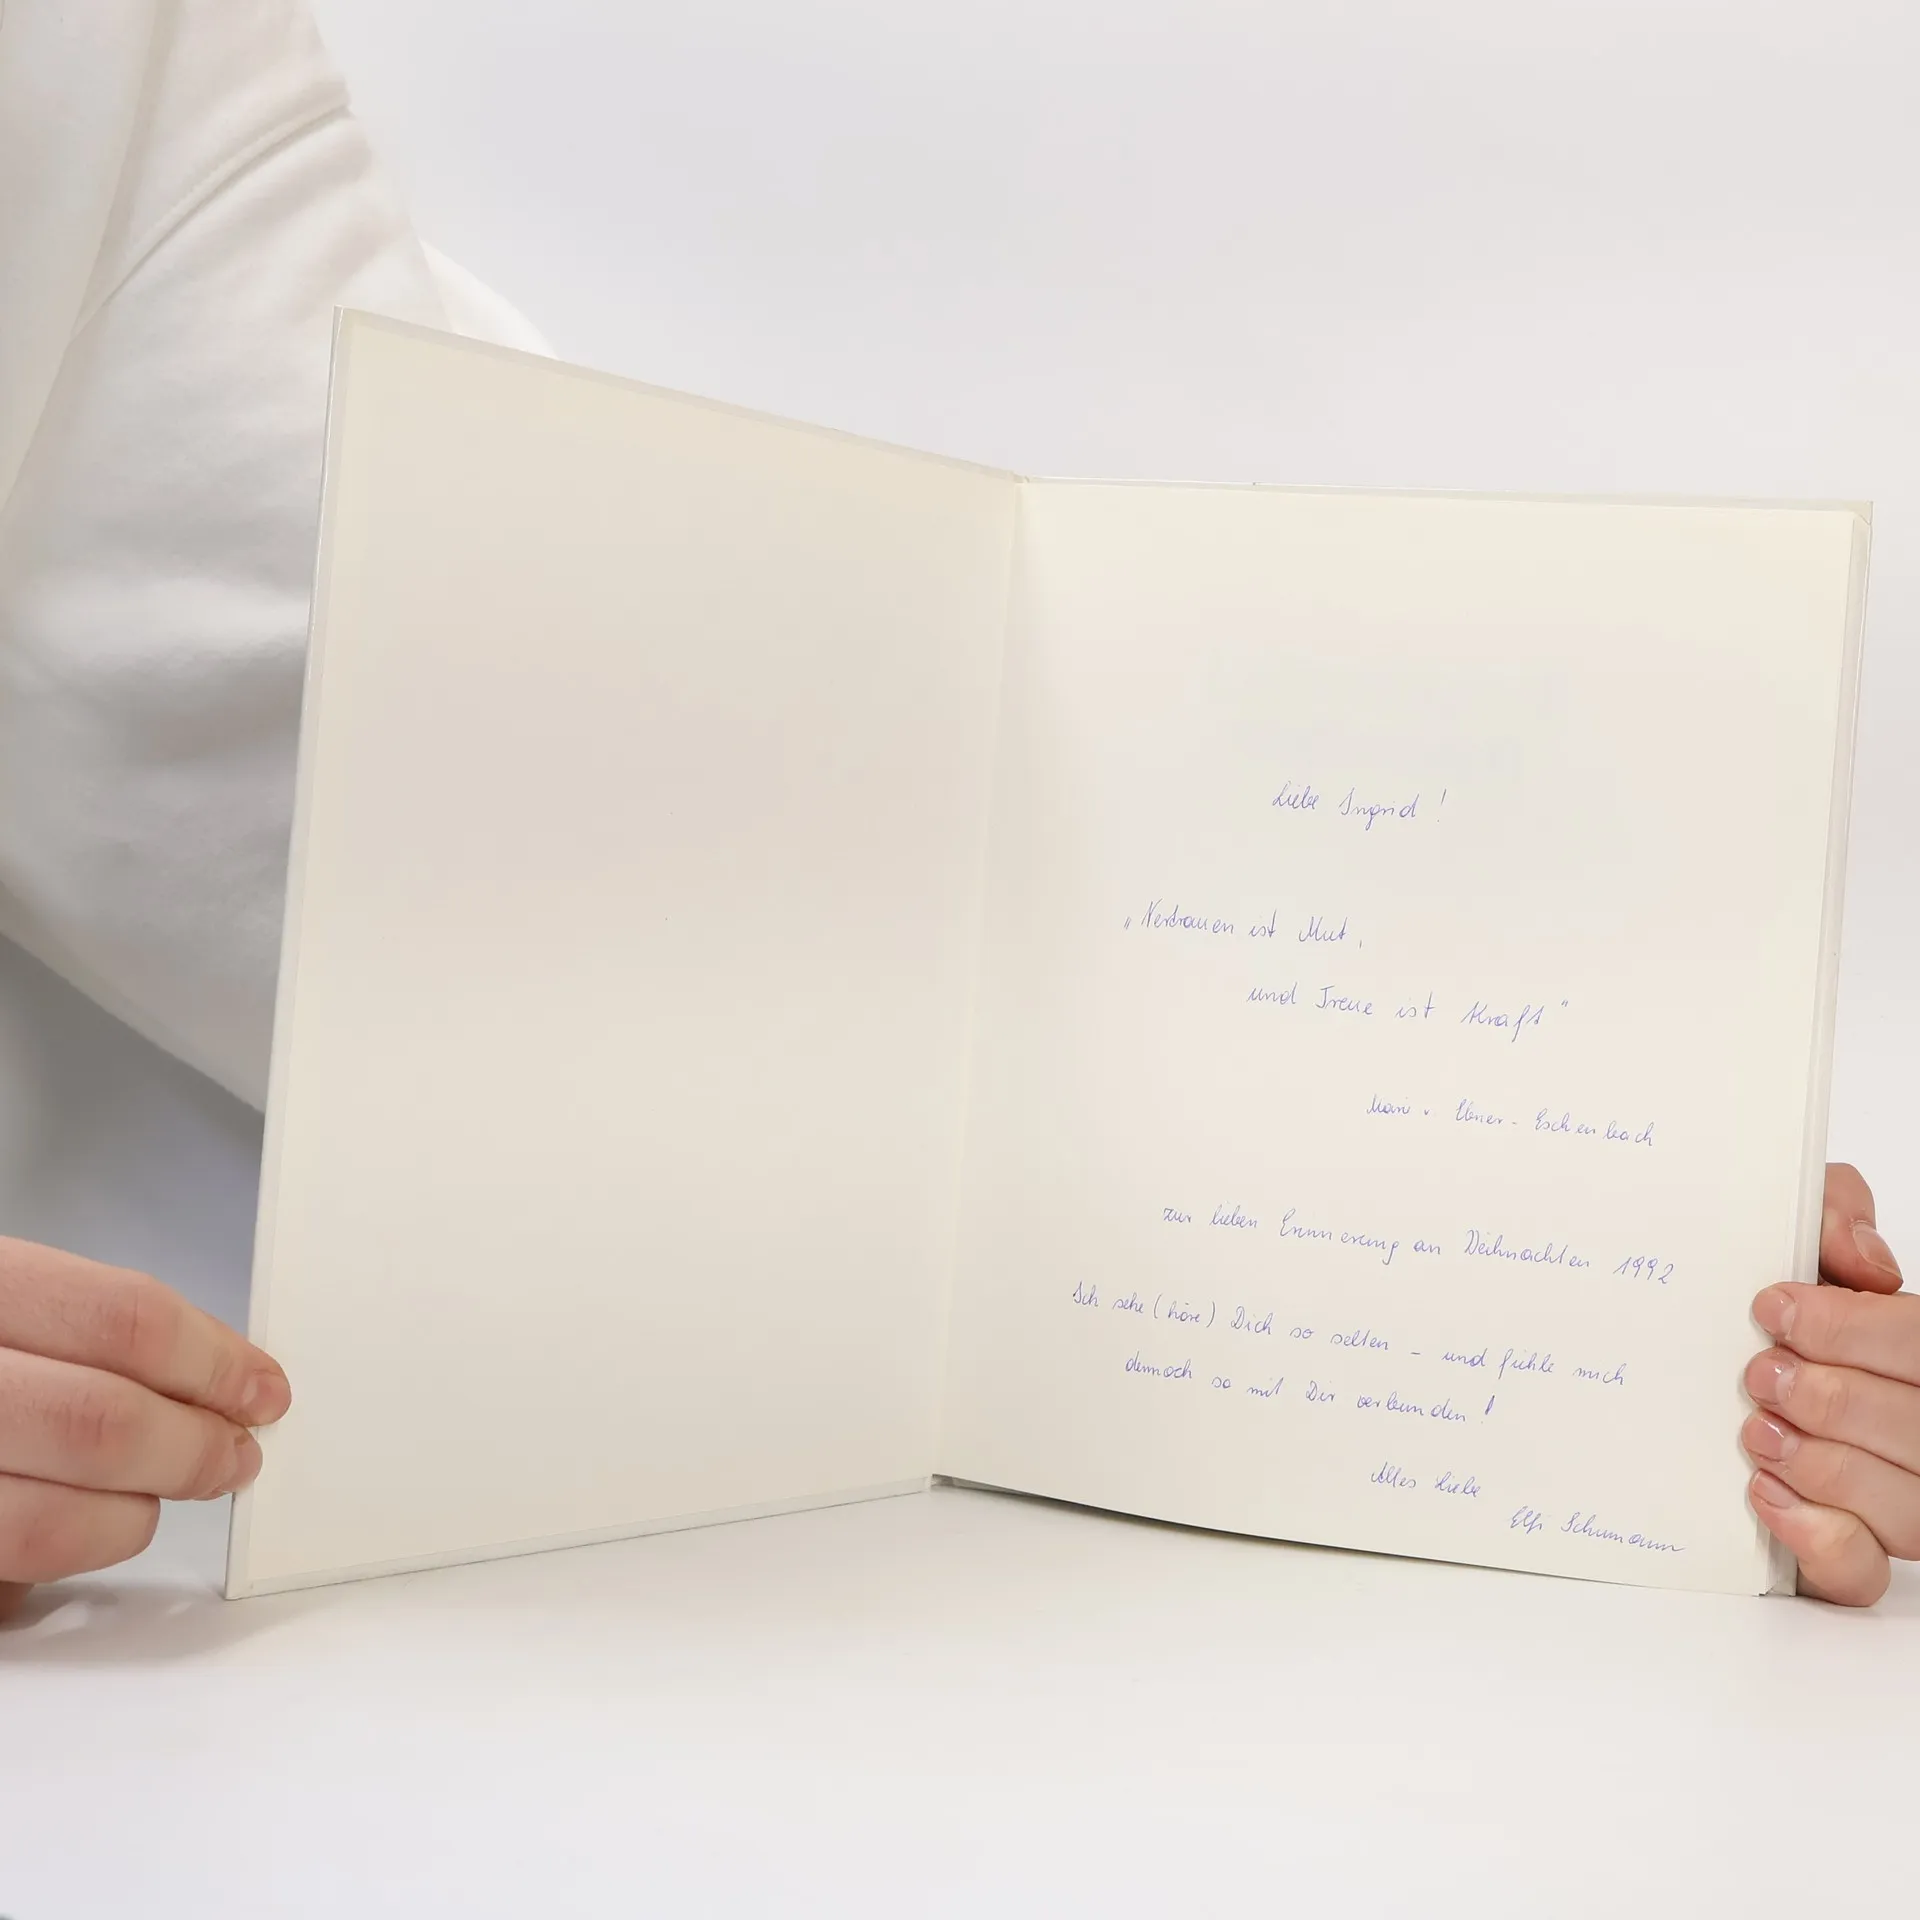 Liebe Ingrid !
„Vertrauen ist Mut,
und Treue ist Kraft"
Marie v. Ebner-Eschenbach
zur lieben Erinnerung an Weihnachten 1992
Ich sehe (höre) Dich so selten – und fühle mich
dennoch so mit Dir verbunden !
Alles Liebe
Elfi Schumann